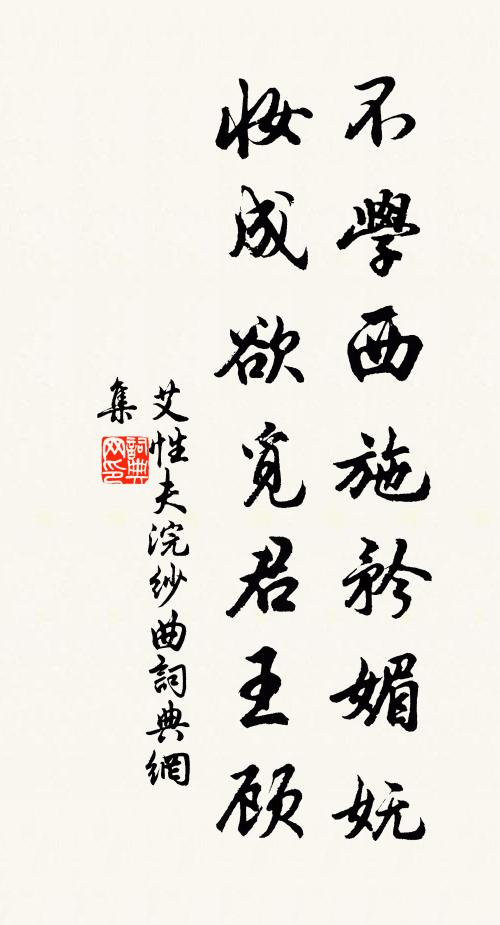 不學西施矜媚妩
妝成欲覓君王顾
艾性夫浣紗曲詞典網
集
詞典網印